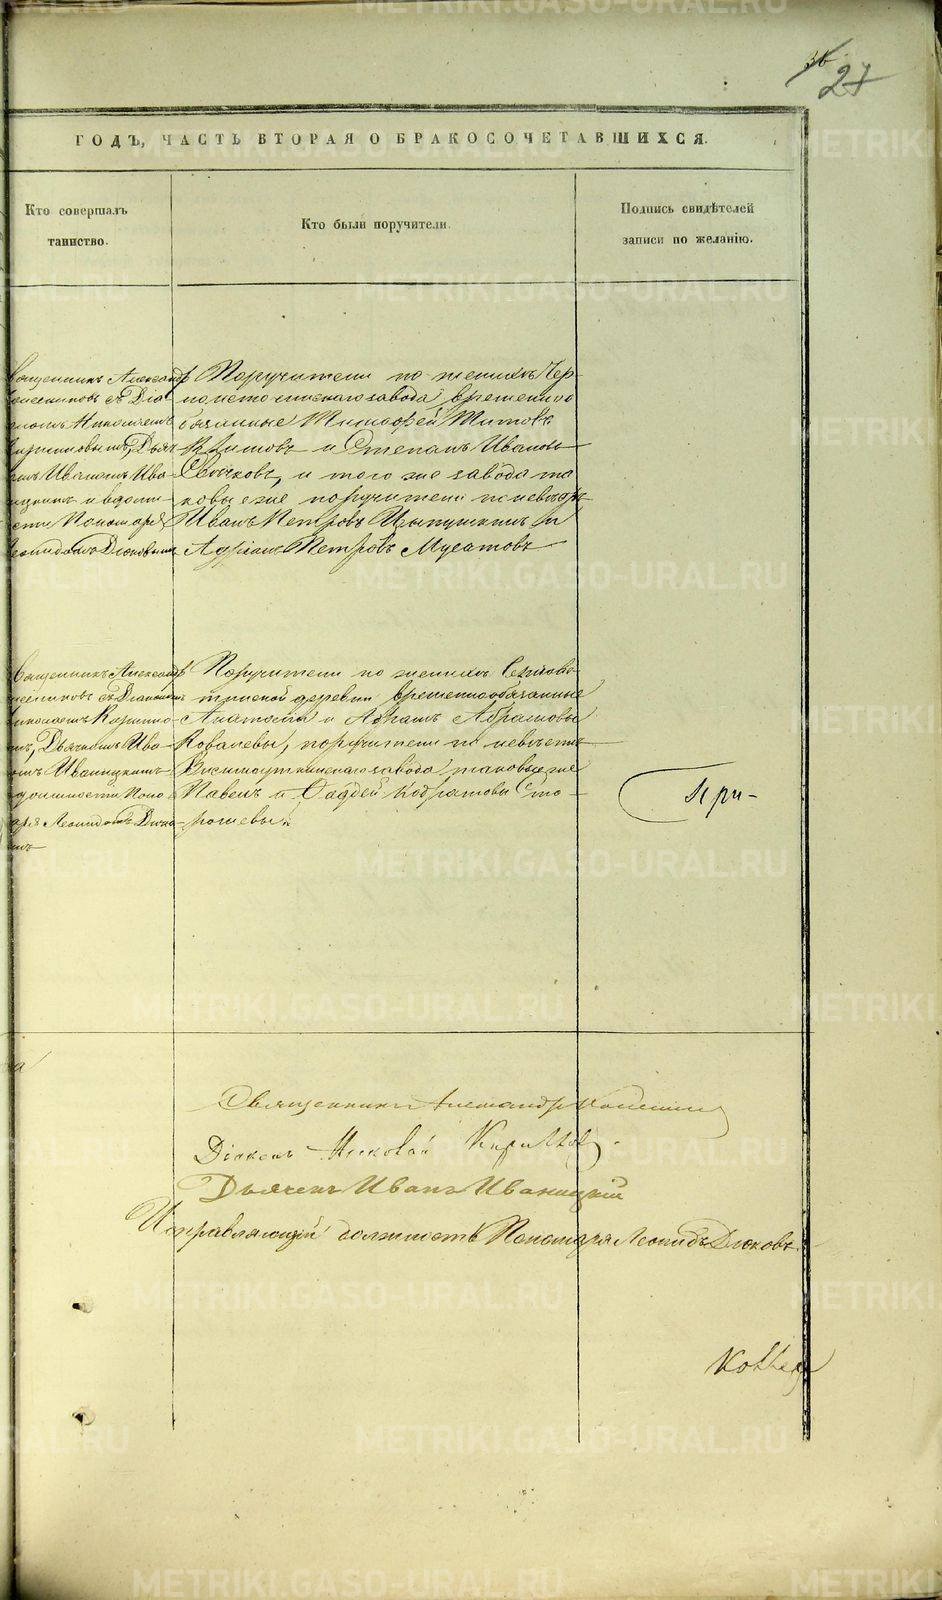 27
ГОДЪ, ЧАСТЬ ВТОРАЯ О БРАКОСОЧЕТАВШИХСЯ.
Кто совершалъ
таинство.
Кто были поручители.
Подпись свидѣтелей
записи по желанію.
Священникъ Александр
съ Діа
кономъ Николаемъ
Кирилловымъ, Дьяч
комъ Иваномъ Ива
ницкимъ и въ должно
сти Пономаря
Леонидомъ Дюковым
Поручители по женихѣ Чер
ноисточинскаго завода временно
обязанные Тимофей Титовъ
и Степанъ Ивановъ
и того же завода та
ковые же поручители по невѣстѣ
Иванъ Петровъ и
Адріанъ Петровъ Мусатовъ
Священникъ Александр
съ Діакономъ
Николаемъ Кирилло
вымъ, Дьячкомъ Ива
номъ Иваницкимъ
должности Поно
маря Леонидомъ Дюко
вымъ
Поручители по женихѣ
деревни временнообязанные
и Абрамъ Абрамовы
Ковалевы, поручители по невѣстѣ
Висимоуткинскаго завода таковые же
Павелъ и Фаддей Кодратовы Сто
рожевы
При-
Священникъ Александръ
Діаконъ Николай Кирилловъ
Дьячекъ Иванъ Иваницкій
Исправляющій должность Пономаря Леонидъ Дюковъ
METRIKI.GASO-URAL.RU